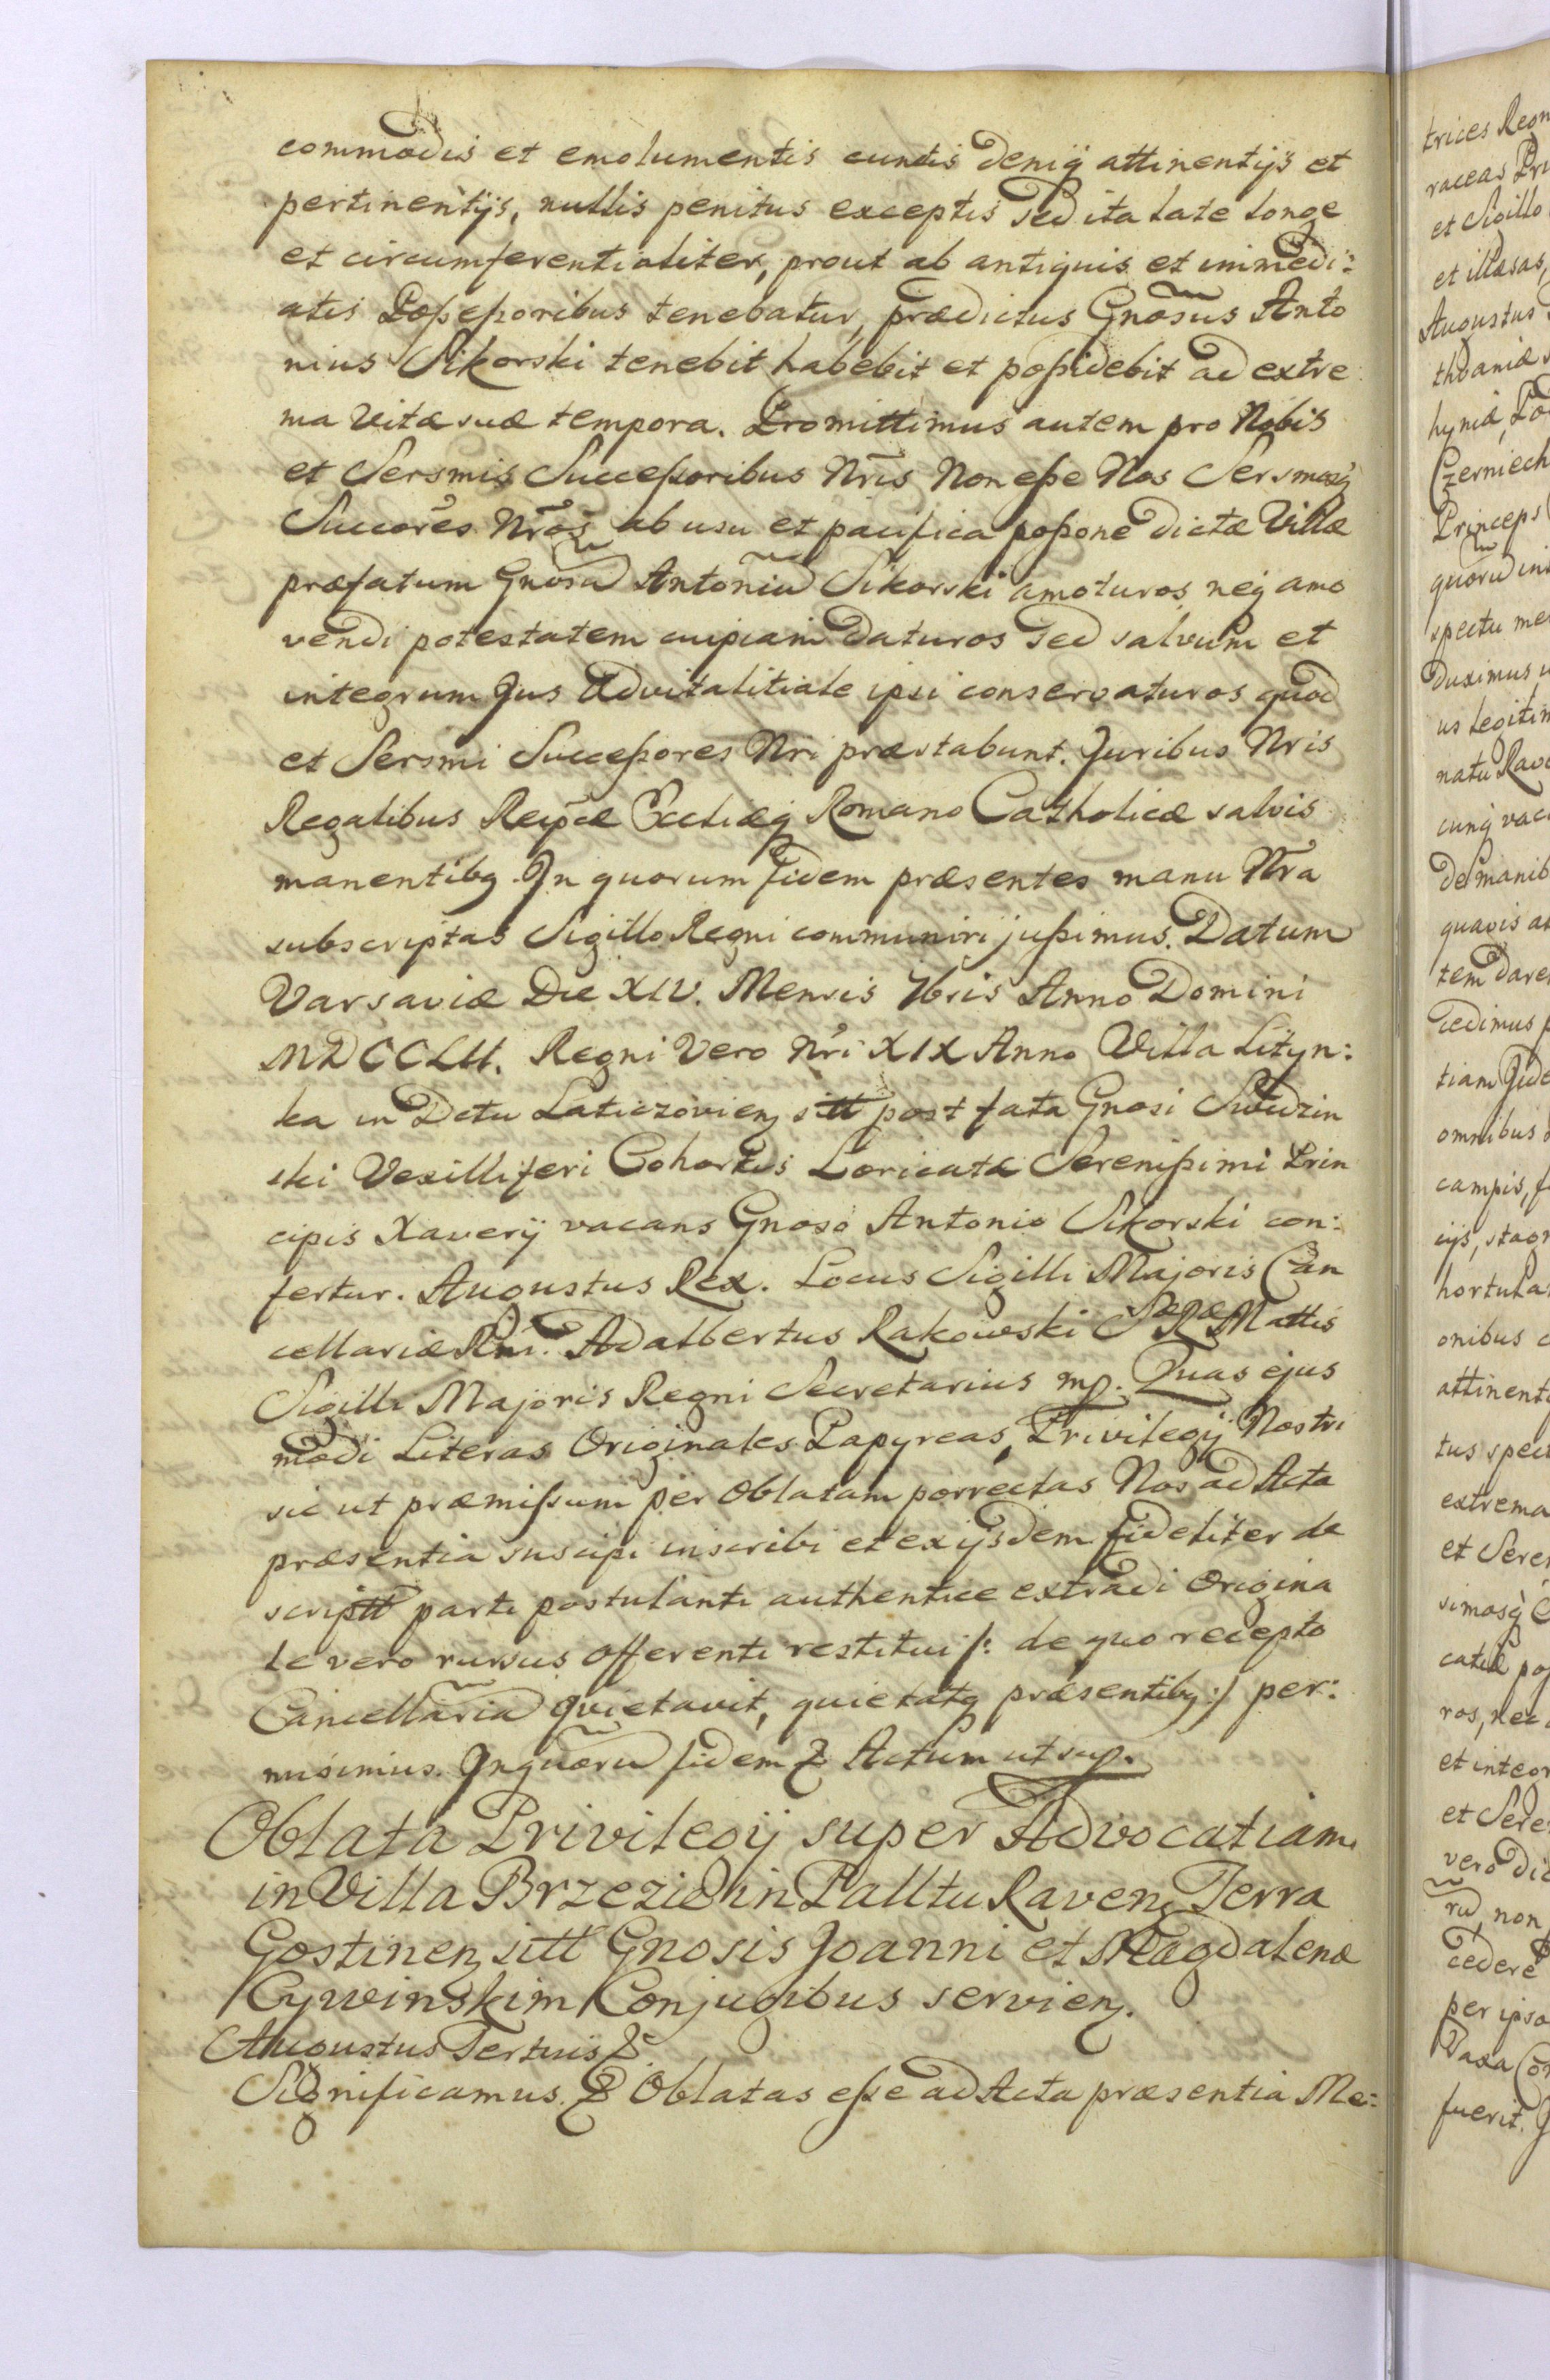 commodis et emolumentis cunctis deniq attinentijs et
pertinentijs, nullis penitus exceptis sed ita late longe
et circumferentialiter, prout ab antiquis et immedi:
atis Poßeßoribus tenebatur, prædictus Gnosus Anto
nius Sikorski tenebit habebit et poßidebit ad extre
ma vitæ suæ tempora. Promittimus autem pro Nobis
et Sersmis Succeßoribus Nris Non eße Nos Sersmosq
Succores Nros ab usu et pacifica poßone dictæ Villæ
præfatum Gnosu Antoniu Sikorski amoturos, neq amo
vendi potestatem cuipiam daturos sed salvum et
integrum Jus Advitalitiale ipsi conservaturos quod
et Sersmi Succeßores Nri præstabunt. Juribus Nris
Regalibus Reipcæ Eccliæq Romano Catholicæ salvis
manentibq. In quorum fidem præsentes manu Nra
subscriptas Sigillo Regni communiri jußimus. Datum
Varsaviæ Die XIV. Mensis 7bris Anno Domini
MDCCLII. Regni Vero Nri XIX Anno Villa Lityn:
ka in Dctu Laticzovienz sitt post fata Gnosi Swidzin
ski Vexilliferi Cohortis Loricatæ Serenißimi Prin
cipis Xaverij vacans Gnoso Antonio Sikorski con:
fertur. Augustus Rex. Locus Sigilli Majoris Can
cellariæ Rni. Adalbertus Rakowski SRæMattis
Sigilli Majoris Regni Secretarius mp. Quas ejus
modi Literas Originales Papyreas, Privilegij Nostri
sic ut præmißum per Oblatam porrectas Nos ad Acta
præsentia suscipi inscribi et ex ijsdem fideliter de
scriptt parti postulanti authentice extradi Origina
le vero rursus Offerenti restitui /: de quo recepto
Cancellaria quietavit, quietatq præsentibq :/ per:
misimus. In quoru fidem & Actum ut sup.
Oblata Privilegij super Advocatiam
in Villa Brzezie in Palltu Ravenz Terra
Gostinenz sitt Gnosis Joanni et Magdalenæ
Cywinskim Conjugibus servienz.
Augustus Tertius &
Significamus. & Oblatas eße ad Acta præsentia Me:
trices Regn
raceas Pri
et Sigillo
et illæsas,
Augustus
thvaniæ
hyniæ, Po
Czerniech
Princeps
quoru int
spectu me
duximus
us legitim
natu Rav
cunq vac
de manib
quavis
tem dare
cedimus
tiam
omnibus
campis, f
cijs, stagn
hortula
onibus c
attinent
tus spect
extrema
et Seren
simosq
catiæ poß
ros, nec
et integr
et Sere
vero dic
ru, non
cedere
per ipso
Taxa Con
fuerit.